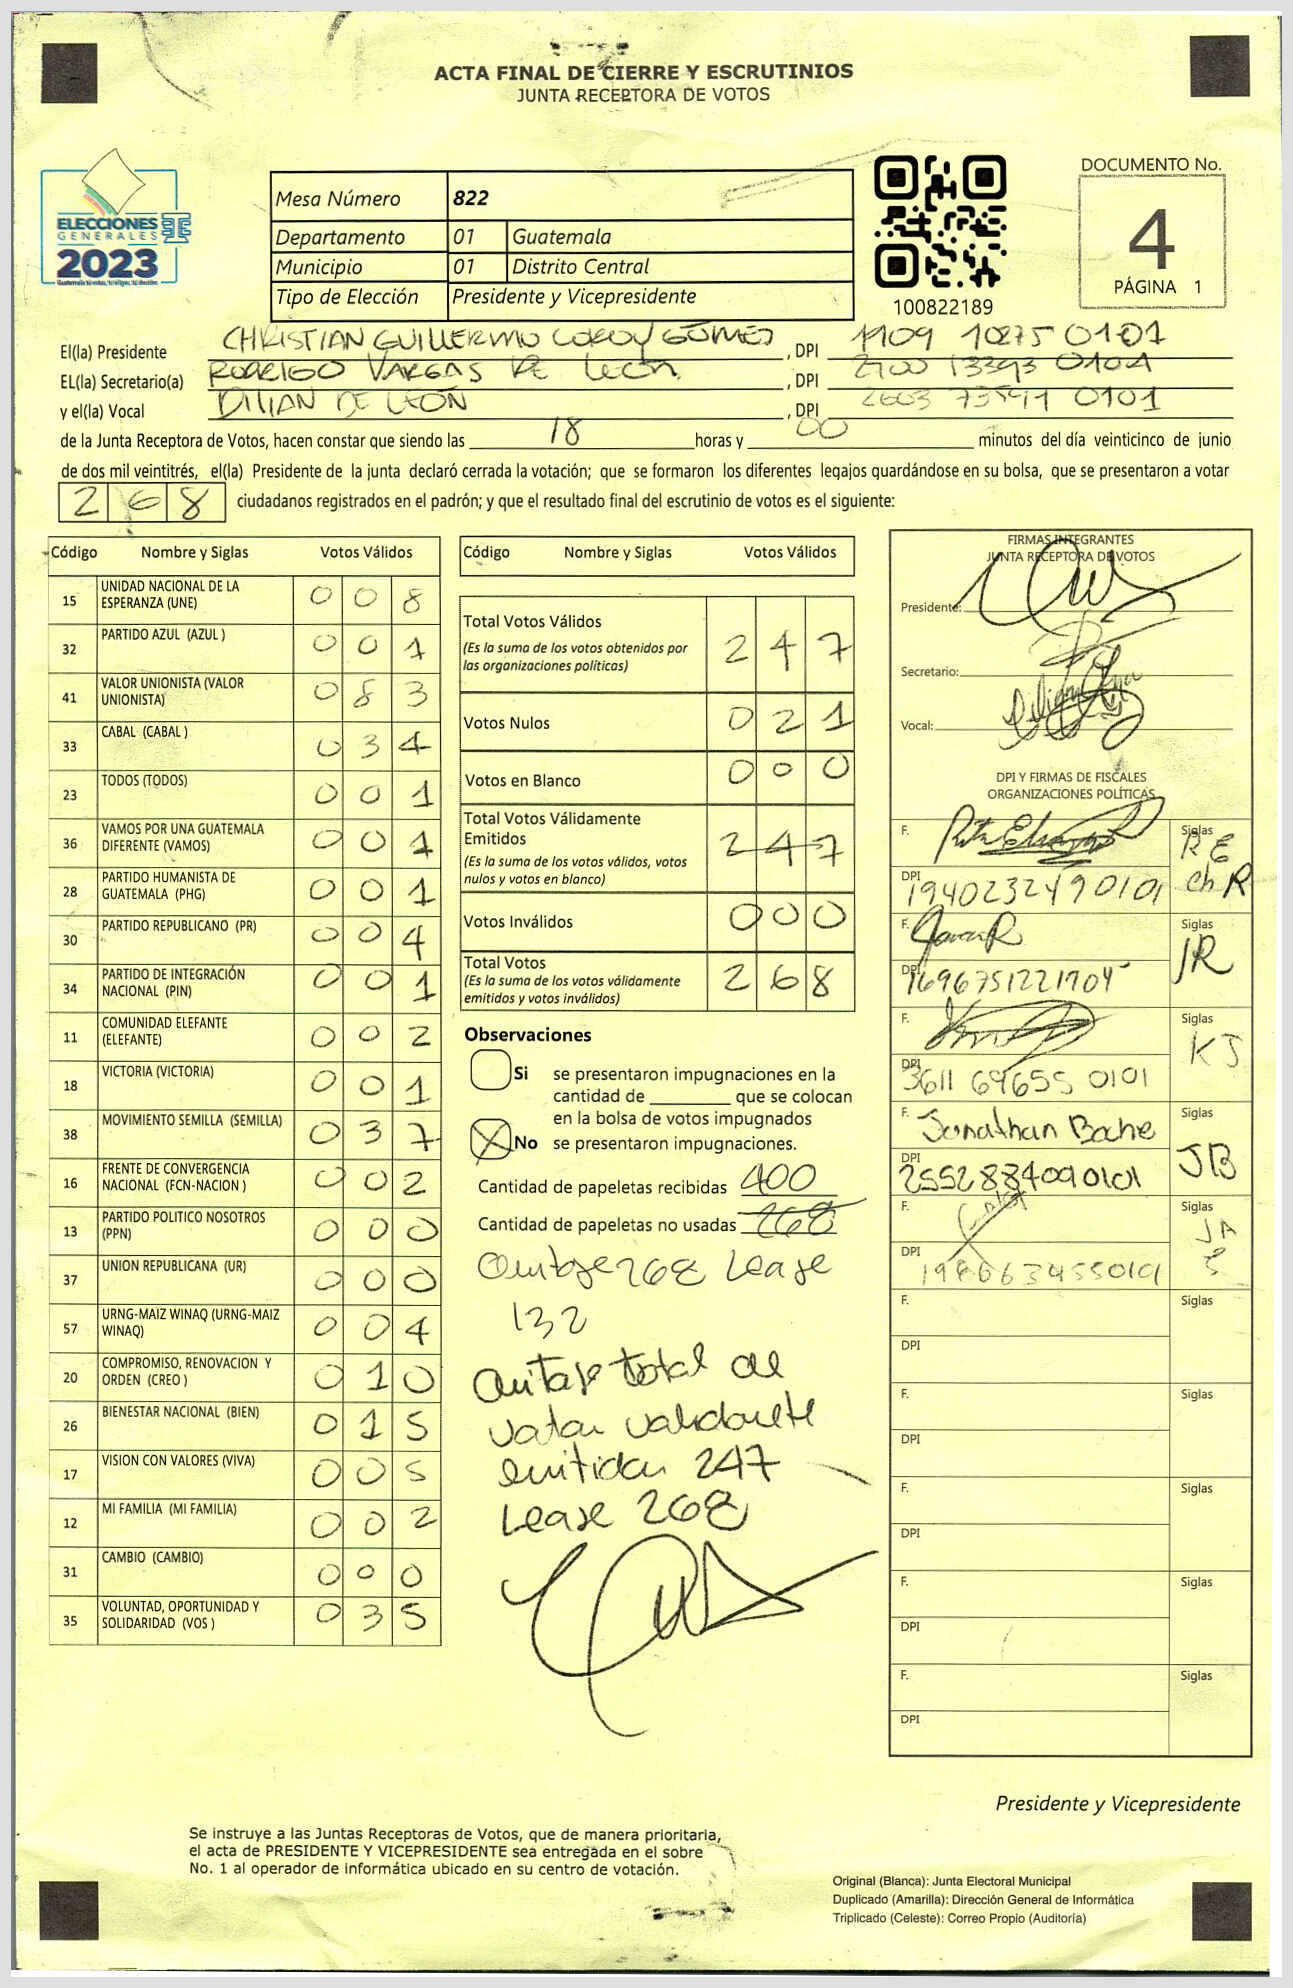 ACTA FINAL DE CIERRE Y ESCRUTINIOS
JUNTA RECEPTORA DE VOTOS
ELECCIONES
GENERALES
2023
Mesa Número 822
Departamento 01 Guatemala
Municipio 01 Distrito Central
Tipo de Elección Presidente y Vicepresidente
100822189
DOCUMENTO No.
4
PÁGINA 1
El(la) Presidente CHRISTIAN GUILLERMO GODOY GÓMEZ , DPI 1909 10275 0101
EL(la) Secretario(a) RODRIGO VARGAS DE LEÓN , DPI 2700 13393 0101
y el(la) Vocal DILIAN DE LEÓN , DPI 2603 73591 0101
de la Junta Receptora de Votos, hacen constar que siendo las 18 horas y 00 minutos del día veinticinco de junio
de dos mil veintitrés, el(la) Presidente de la junta declaró cerrada la votación; que se formaron los diferentes legajos guardándose en su bolsa, que se presentaron a votar
268 ciudadanos registrados en el padrón; y que el resultado final del escrutinio de votos es el siguiente:
Código Nombre y Siglas Votos Válidos
15 UNIDAD NACIONAL DE LA ESPERANZA (UNE) 008
32 PARTIDO AZUL (AZUL ) 001
41 VALOR UNIONISTA (VALOR UNIONISTA) 083
33 CABAL (CABAL ) 034
23 TODOS (TODOS) 001
36 VAMOS POR UNA GUATEMALA DIFERENTE (VAMOS) 001
28 PARTIDO HUMANISTA DE GUATEMALA (PHG) 001
30 PARTIDO REPUBLICANO (PR) 004
34 PARTIDO DE INTEGRACIÓN NACIONAL (PIN) 001
11 COMUNIDAD ELEFANTE (ELEFANTE) 002
18 VICTORIA (VICTORIA) 001
38 MOVIMIENTO SEMILLA (SEMILLA) 037
16 FRENTE DE CONVERGENCIA NACIONAL (FCN-NACION ) 002
13 PARTIDO POLITICO NOSOTROS (PPN) 000
37 UNION REPUBLICANA (UR) 000
57 URNG-MAIZ WINAQ (URNG-MAIZ WINAQ) 004
20 COMPROMISO, RENOVACION Y ORDEN (CREO ) 010
26 BIENESTAR NACIONAL (BIEN) 015
17 VISION CON VALORES (VIVA) 005
12 MI FAMILIA (MI FAMILIA) 002
31 CAMBIO (CAMBIO) 000
35 VOLUNTAD, OPORTUNIDAD Y SOLIDARIDAD (VOS ) 035
Código Nombre y Siglas Votos Válidos
Total Votos Válidos 247
(Es la suma de los votos obtenidos por
las organizaciones politicas)
Votos Nulos 021
Votos en Blanco 000
Total Votos Válidamente
Emitidos 247
(Es la suma de los votos válidos, votos
nulos y votos en blanco)
Votos Inválidos 000
Total Votos 268
(Es la suma de los votos válidamente
emitidos y votos inválidos)
Observaciones
Si se presentaron impugnaciones en la
cantidad de ________ que se colocan
en la bolsa de votos impugnados
No se presentaron impugnaciones.
Cantidad de papeletas recibidas 400
Cantidad de papeletas no usadas 268
Omitase 268 Lease
132
Omitase total de
votos validamente
emitidos 247
Lease 268
FIRMAS INTEGRANTES
JUNTA RECEPTORA DE VOTOS
Presidente:
Secretario:
Vocal:
DPI Y FIRMAS DE FISCALES
ORGANIZACIONES POLÍTICAS
F. Siglas RE
DPI 1940232490101 ChR
F. Siglas JR
DPI 1696751221704
F. Siglas KJ
DPI 3611 69655 0101
F. Jonathan Siglas JB
DPI 2552884090101
F. Siglas JA
DPI 1986634550101
F. Siglas
DPI
F. Siglas
DPI
F. Siglas
DPI
F. Siglas
DPI
F. Siglas
DPI
Presidente y Vicepresidente
Se instruye a las Juntas Receptoras de Votos, que de manera prioritaria,
el acta de PRESIDENTE Y VICEPRESIDENTE sea entregada en el sobre
No. 1 al operador de informática ubicado en su centro de votación.
Original (Blanca): Junta Electoral Municipal
Duplicado (Amarilla): Dirección General de Informática
Triplicado (Celeste): Correo Propio (Auditoría)